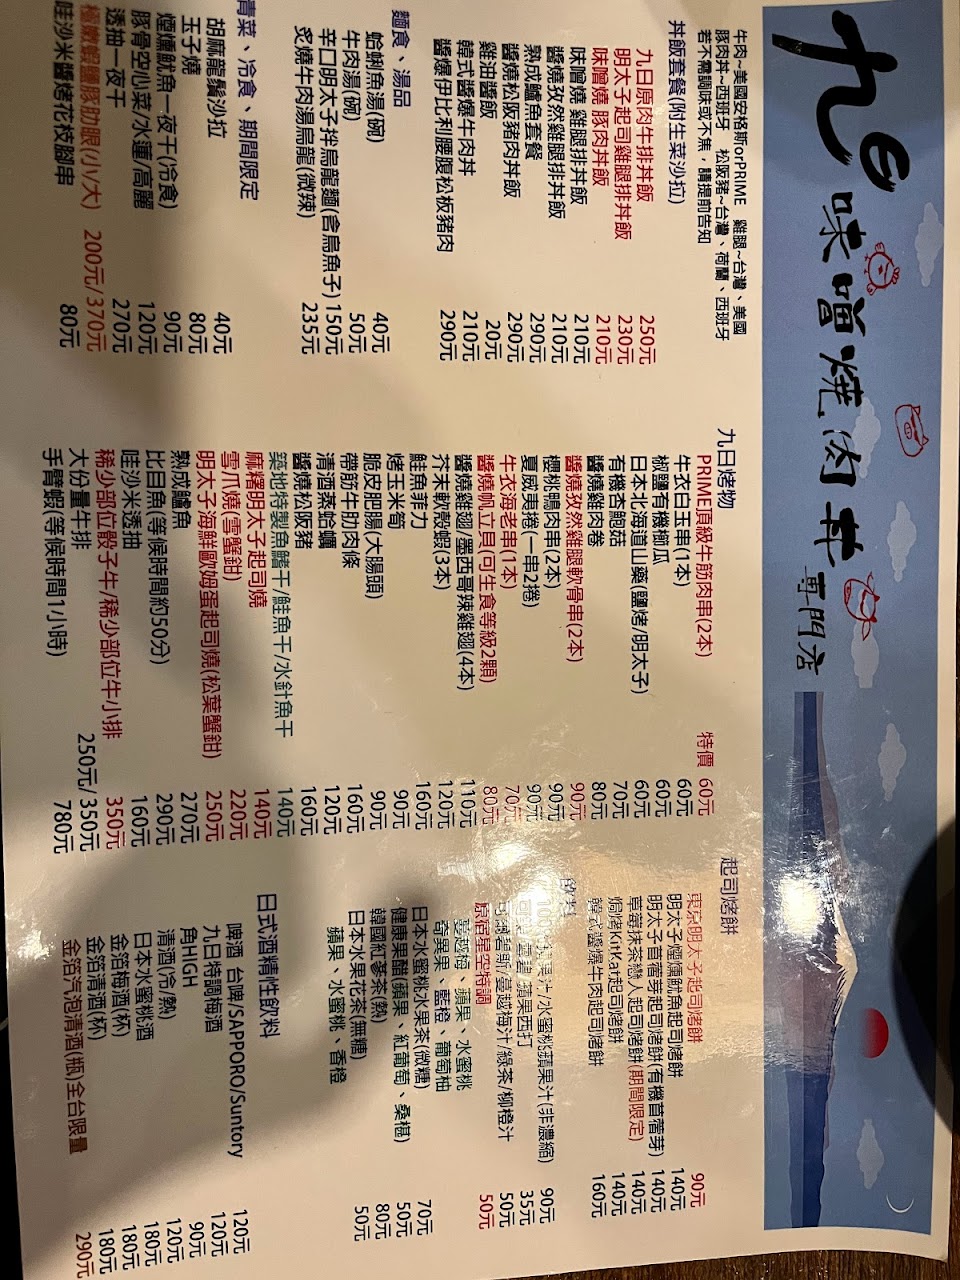 九日
味噌燒肉丼
專門店
牛肉~美國安格斯orPRIME 雞腿~台灣、美國
豚肉丼~西班牙 松阪豬~台灣、荷蘭、西班牙
若不需調味或不焦，請提前告知
丼飯套餐(附生菜沙拉)
九日原肉牛排丼飯 250元
明太子起司雞腿排丼飯 230元
味噌燒 豚肉丼飯 210元
味噌燒 雞腿排丼飯 210元
醬燒孜然雞腿排丼飯 210元
熟成鱸魚套餐 290元
醬燒松阪豬肉丼飯 290元
雞油醬飯 20元
韓式醬爆牛肉丼 210元
醬爆伊比利腰腹松板豬肉 290元
麵食、湯品
蛤蜊魚湯(碗) 40元
牛肉湯(碗) 50元
辛口明太子拌烏龍麵(含烏魚子) 150元
炙燒牛肉湯烏龍(微辣) 235元
青菜、冷食、期間限定
胡麻龍鬚沙拉 40元
玉子燒 80元
煙燻魷魚一夜干(冷食) 90元
豚骨空心菜/水蓮/高麗 120元
透抽一夜干 270元
極嫩蝦鹽豚肋眼(小/大) 200元/370元
哇沙米醬烤花枝腳串 80元
九日烤物
PRIME頂級牛筋肉串(2本) 特價 60元
牛衣白玉串(1本) 60元
椒鹽有機櫛瓜 60元
日本北海道山藥(鹽烤/明太子) 60元
有機杏鮑菇 70元
醬燒雞肉卷 80元
醬燒孜然雞腿軟骨串(2本) 90元
櫻桃鴨肉串(2本) 90元
夏威夷捲(一串2捲) 90元
牛衣海老串(1本) 70元
醬燒帆立貝(可生食等級2顆) 80元
醬燒雞翅/墨西哥辣雞翅(4本) 110元
芥末軟殼蝦(3本) 120元
鮭魚菲力 160元
烤玉米筍 90元
脆皮肥腸(大腸頭) 90元
帶筋牛肋肉條 160元
清酒蒸蛤蠣 120元
醬燒松阪豬 160元
築地特製魚鰭干/鮭魚干/水針魚干 140元
麻糬明太子起司燒 140元
雪爪燒(雪蟹鉗) 220元
明太子海鮮歐姆蛋起司燒(松葉蟹鉗) 250元
熟成鱸魚 270元
比目魚(等候時間約50分) 290元
哇沙米透抽 160元
稀少部位骰子牛/稀少部位牛小排 350元
大份量牛排 250元/350元
手臂蝦(等候時間1小時) 780元
起司烤餅
東京明太子起司烤餅 90元
明太子煙燻魷魚起司烤餅 140元
明太子苜蓿芽起司烤餅(有機苜蓿芽) 140元
草莓抹茶戀人起司烤餅(期間限定) 140元
焗烤KitKat起司烤餅 140元
韓式醬爆牛肉起司烤餅 160元
飲料
果汁/水蜜桃蘋果汁(非濃縮) 90元
雪碧/蘋果西打 35元
可爾必斯/蔓越梅汁/綠茶/柳橙汁 50元
原宿星空特調 50元
蔓越梅、蘋果、水蜜桃
奇異果、藍橙、葡萄柚
日本水蜜桃水果茶(微糖) 70元
健康果醋(蘋果、紅葡萄、桑椹) 50元
韓國紅蔘茶(熱) 80元
日本水果花茶(無糖) 50元
蘋果、水蜜桃、香橙
日式酒精性飲料
啤酒 台啤/SAPPORO/Suntory 120元
九日特調梅酒 120元
角HIGH 90元
清酒(冷/熱) 120元
日本水蜜桃酒 180元
金箔梅酒(杯) 180元
金箔清酒(杯) 180元
金箔汽泡清酒(瓶)全台限量 290元